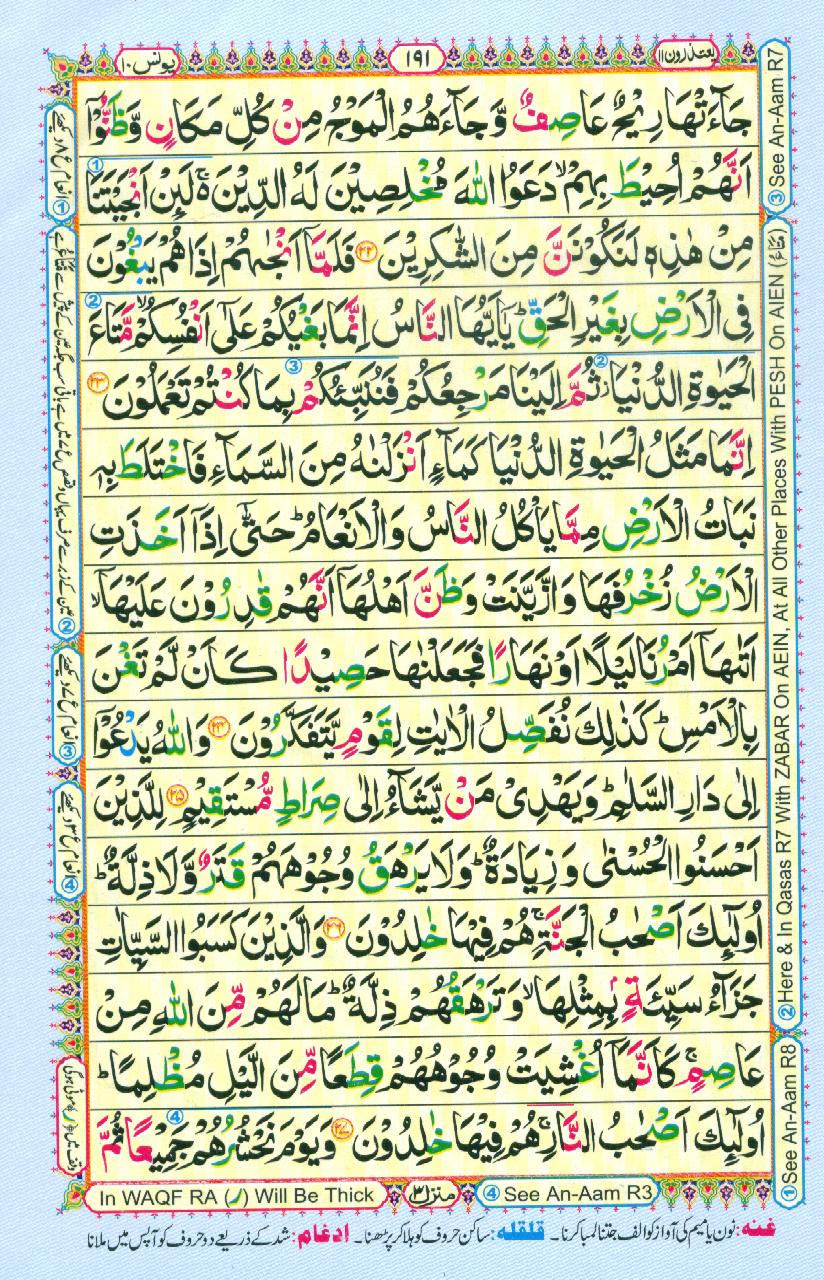 یونس ۱۰
۱۹۱
یعتذرون ۱۱
جَآءَتْهَا رِیْحٌ عَاصِفٌ وَّجَآءَهُمُ الْمَوْجُ مِنْ كُلِّ مَكَانٍ وَّظَنُّوْۤا
اَنَّهُمْ اُحِیْطَ بِهِمْ ۙ دَعَوُا اللّٰهَ مُخْلِصِیْنَ لَهُ الدِّیْنَ ۚ۬ لَىِٕنْ اَنْجَیْتَنَا
مِنْ هٰذِهٖ لَنَكُوْنَنَّ مِنَ الشّٰكِرِیْنَ ۲۲ فَلَمَّاۤ اَنْجٰىهُمْ اِذَا هُمْ یَبْغُوْنَ
فِی الْاَرْضِ بِغَیْرِ الْحَقِّ ؕ یٰۤاَیُّهَا النَّاسُ اِنَّمَا بَغْیُكُمْ عَلٰۤى اَنْفُسِكُمْ ۙ مَّتَاعَ
الْحَیٰوةِ الدُّنْیَا ؗ ثُمَّ اِلَیْنَا مَرْجِعُكُمْ فَنُنَبِّئُكُمْ بِمَا كُنْتُمْ تَعْمَلُوْنَ ۲۳
اِنَّمَا مَثَلُ الْحَیٰوةِ الدُّنْیَا كَمَآءٍ اَنْزَلْنٰهُ مِنَ السَّمَآءِ فَاخْتَلَطَ بِهٖ
نَبَاتُ الْاَرْضِ مِمَّا یَاْكُلُ النَّاسُ وَالْاَنْعَامُ ؕ حَتّٰۤى اِذَاۤ اَخَذَتِ
الْاَرْضُ زُخْرُفَهَا وَازَّیَّنَتْ وَظَنَّ اَهْلُهَاۤ اَنَّهُمْ قٰدِرُوْنَ عَلَیْهَاۤ ۙ
اَتٰىهَاۤ اَمْرُنَا لَیْلًا اَوْ نَهَارًا فَجَعَلْنٰهَا حَصِیْدًا كَاَنْ لَّمْ تَغْنَ
بِالْاَمْسِ ؕ كَذٰلِكَ نُفَصِّلُ الْاٰیٰتِ لِقَوْمٍ یَّتَفَكَّرُوْنَ ۲۴ وَاللّٰهُ یَدْعُوْۤا
اِلٰى دَارِ السَّلٰمِ ؕ وَیَهْدِیْ مَنْ یَّشَآءُ اِلٰى صِرَاطٍ مُّسْتَقِیْمٍ ۲۵ لِلَّذِیْنَ
اَحْسَنُوا الْحُسْنٰى وَزِیَادَةٌ ؕ وَلَا یَرْهَقُ وُجُوْهَهُمْ قَتَرٌ وَّلَا ذِلَّةٌ ؕ
اُولٰٓىِٕكَ اَصْحٰبُ الْجَنَّةِ ۚ هُمْ فِیْهَا خٰلِدُوْنَ ۲۶ وَالَّذِیْنَ كَسَبُوا السَّیِّاٰتِ
جَزَآءُ سَیِّئَةٍۭ بِمِثْلِهَا ۙ وَتَرْهَقُهُمْ ذِلَّةٌ ؕ مَا لَهُمْ مِّنَ اللّٰهِ مِنْ
عَاصِمٍ ۚ كَاَنَّمَاۤ اُغْشِیَتْ وُجُوْهُهُمْ قِطَعًا مِّنَ الَّیْلِ مُظْلِمًا ؕ
اُولٰٓىِٕكَ اَصْحٰبُ النَّارِ ۚ هُمْ فِیْهَا خٰلِدُوْنَ ۲۷ وَیَوْمَ نَحْشُرُهُمْ جَمِیْعًا ثُمَّ
③ See An-Aam R7
② Here & In Qasas R7 With ZABAR On AEIN, At All Other Places With PESH On AIEN (مَتَاعُ)
① See An-Aam R8
④ See An-Aam R3
منزل ۳
In WAQF RA (ر) Will Be Thick
غنه: نون یا میم کی آواز کو الف جتنا لمبا کرنا۔ قلقله: ساکن حروف کو ہلا کر پڑھنا۔ ادغام: شد کے ذریعے دو حروف کو آپس میں ملانا